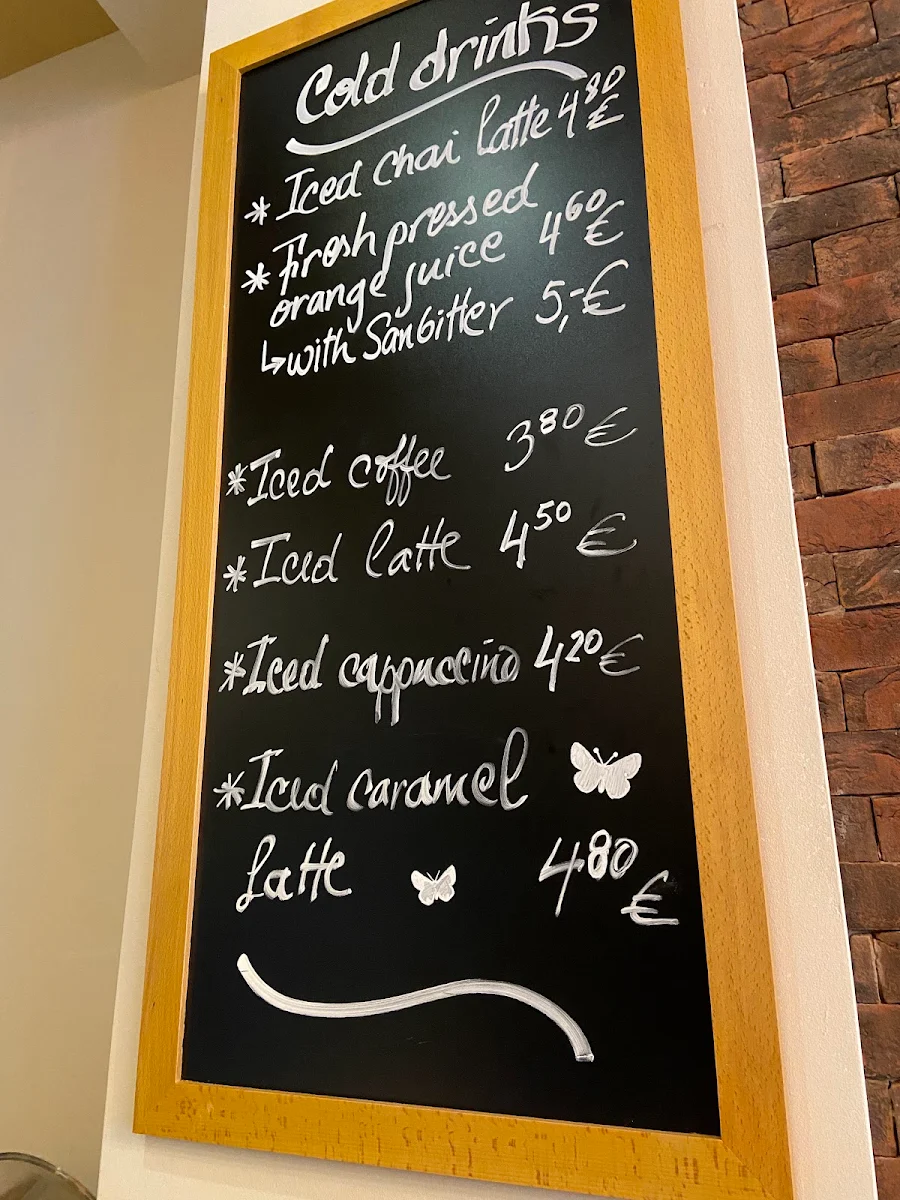 Cold drinks
* Iced chai latte 4⁸⁰ €
* Fresh pressed
orange juice 4⁶⁰ €
↳ with Sanbitter 5,- €
* Iced coffee 3⁸⁰ €
* Iced latte 4⁵⁰ €
* Iced cappuccino 4²⁰ €
* Iced caramel
Latte 4⁸⁰ €